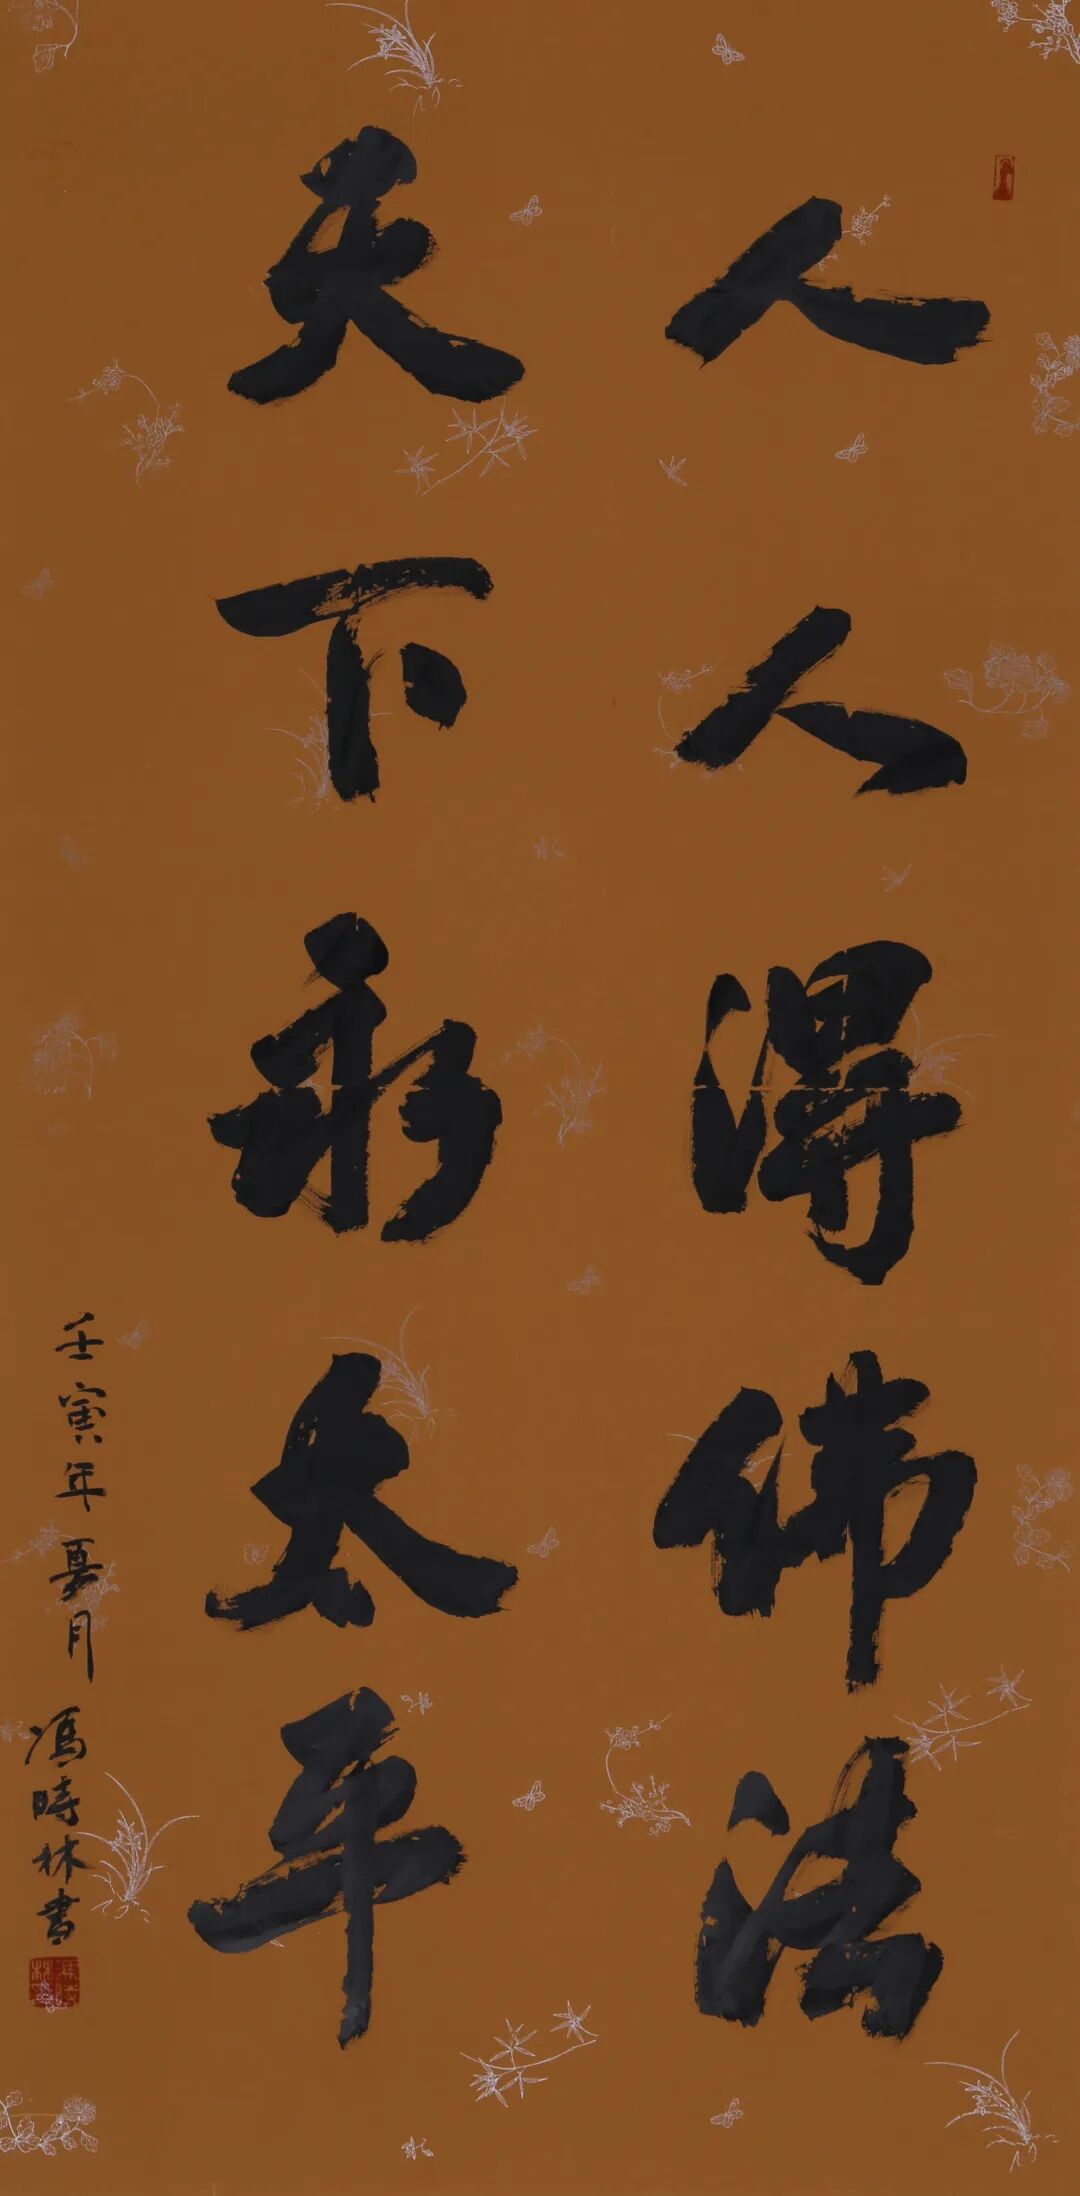 人人得佛法
天下永太平
壬寅年夏月
馮時林書